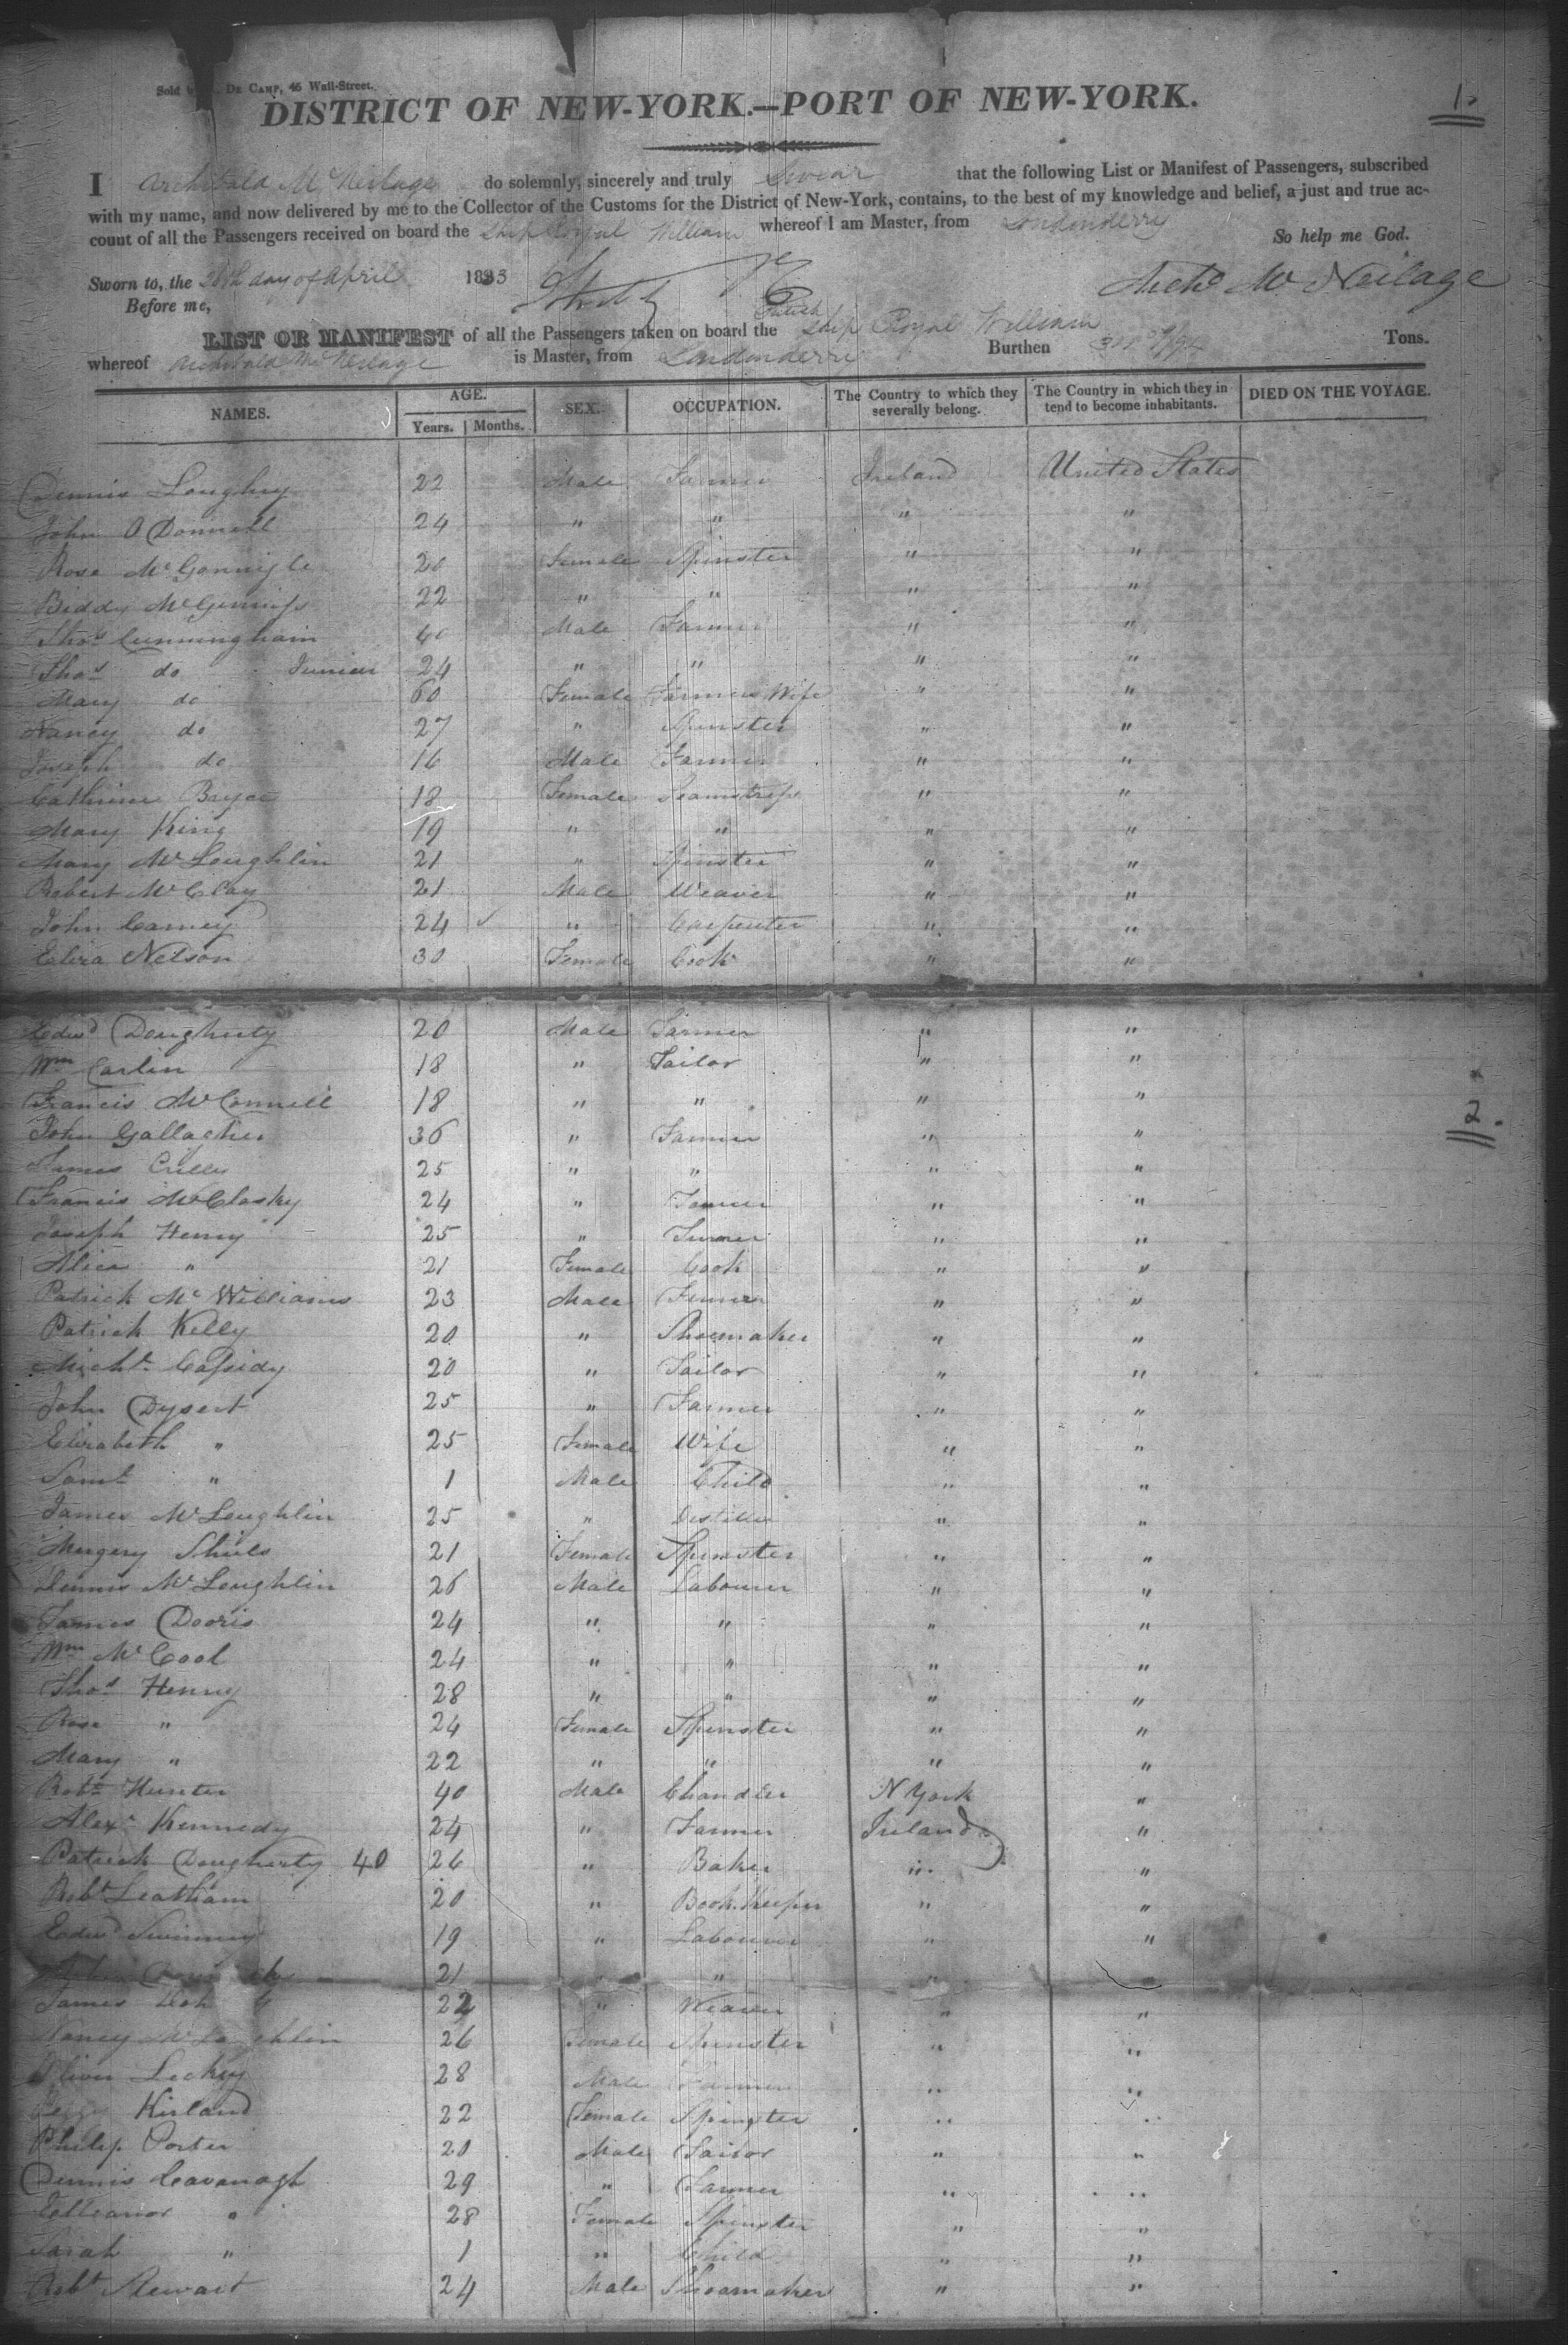 Sold DE CAMP, 45 Wall-Street.
DISTRICT OF NEW-YORK.—PORT OF NEW-YORK.
1.
I Archibald McNeilage do solemnly, sincerely and truly Swear that the following List or Manifest of Passengers, subscribed
with my name, and now delivered by me to the Collector of the Customs for the District of New-York, contains, to the best of my knowledge and belief, a just and true ac-
count of all the Passengers received on board the Ship Royal William whereof I am Master, from Londonderry
So help me God.
Sworn to, the 28th day of April 1833
Archd McNeilage
Before me,
LIST OR MANIFEST of all the Passengers taken on board the British Ship Royal William
whereof Archibald McNeilage is Master, from Londonderry Burthen Tons.
NAMES. AGE. Years. Months. SEX. OCCUPATION. The Country to which they severally belong. The Country in which they intend to become inhabitants. DIED ON THE VOYAGE.
Dennis Loughry 22 Male Farmer Ireland United States
John O Donnell 24 " " " "
Rose McGonnigle 20 Female Spinster " "
Biddy McGinniss 22 " " " "
Thos Cunningham 40 Male Farmer " "
Thos do Junior 24 " " " "
Mary do 60 Female Farmers Wife " "
Nancy do 27 " Spinster " "
Joseph do 16 Male Farmer " "
Cathrine Bryce 18 Female Seamstress " "
Mary King 19 " " " "
Mary McLoughlin 21 " Spinster " "
Robert McClay 21 Male Weaver " "
John Carney 24 " Carpenter " "
Eliza Nelson 30 Female Cook " "
Edwd Dougherty 20 Male Farmer " "
Wm Carlin 18 " Tailor " "
Francis McConnell 18 " " " "
John Gallagher 36 " Farmer " "
James Crilly 25 " " " "
Francis McClosky 24 " Farmer " "
Joseph Henry 25 " " "
Alice " 21 Female Cook " "
Patrick McWilliams 23 Male Farmer " "
Patrick Kelly 20 " Shoemaker " "
Michl Cassidy 20 " Tailor " "
John Dysert 25 " Farmer " "
Elizabeth " 25 Female Wife " "
Saml " 1 Male Child " "
James McLoughlin 25 " Distiller " "
Margery Shiels 21 Female Spinster " "
Dennis McLoughlin 26 Male Labourer " "
James Dooris 24 " " " "
Wm McCool 24 " " " "
Thos Henry 28 " " " "
Rose " 24 Female Spinster " "
Mary " 22 " " " "
Robt Hunter 40 Male Chandler N York "
Alexr Kennedy 24 " Farmer Ireland "
Patrick Dougherty 40 26 " Baker " "
Robt Leatham 20 " Book Keeper " "
Edwd Swinney 19 " Labourer " "
21 " " " "
James 22 " Weaver " "
Nancy McLoughlin 26 Female Spinster " "
Oliver Leckey 28 Male Farmer " "
Kirland 22 Female Spinster " "
Philip Porter 20 Male Tailor " "
Dennis Cavanagh 29 " Farmer " "
Elleanor " 28 Female Spinster " "
Sarah " 1 " Child " "
Robt Stewart 24 Male Shoemaker " "
2.